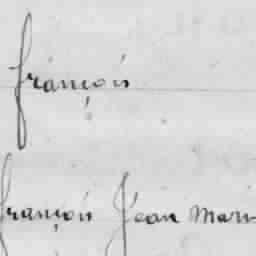 françois
françois Jean Marie